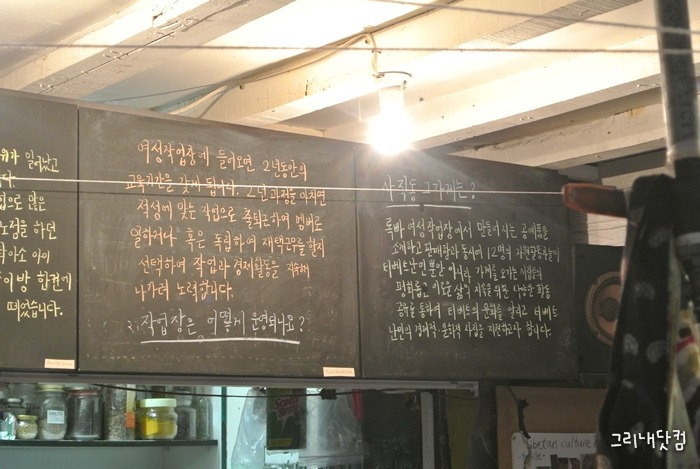 위가 일어났고
다.
법으로 많은
노점을 하던
탁아소 아이
이 방 한칸에
떼었습니다.
여성작업장에 들어오면 2년동안의
교육기간을 갖게 됩니다. 2년과정을 마치면
적성에 맞는 작업으로 출퇴근하며 멤버로
일하거나 혹은 독립하여 재택근무를 할지
선택하여 작업과 경제활동을 지속해
나가려 노력합니다.
작업장은 어떻게 운영되나요?
사직동 그가게는?
록빠 여성작업장에서 만들어지는 공예품을
소개하고 판매함과 동시에 12명의 자원활동가들이
티베트난민 뿐만 아니라, 가게를 오가는 사람들의
평화롭고 이로운 삶의 지속을 위한 다양한 활동
공유를 통하여 티베트의 문화를 알리고 티베트
난민의 경제적·문화적 자립을 지원하고자 합니다.
Tibetan culture
그리내닷컴